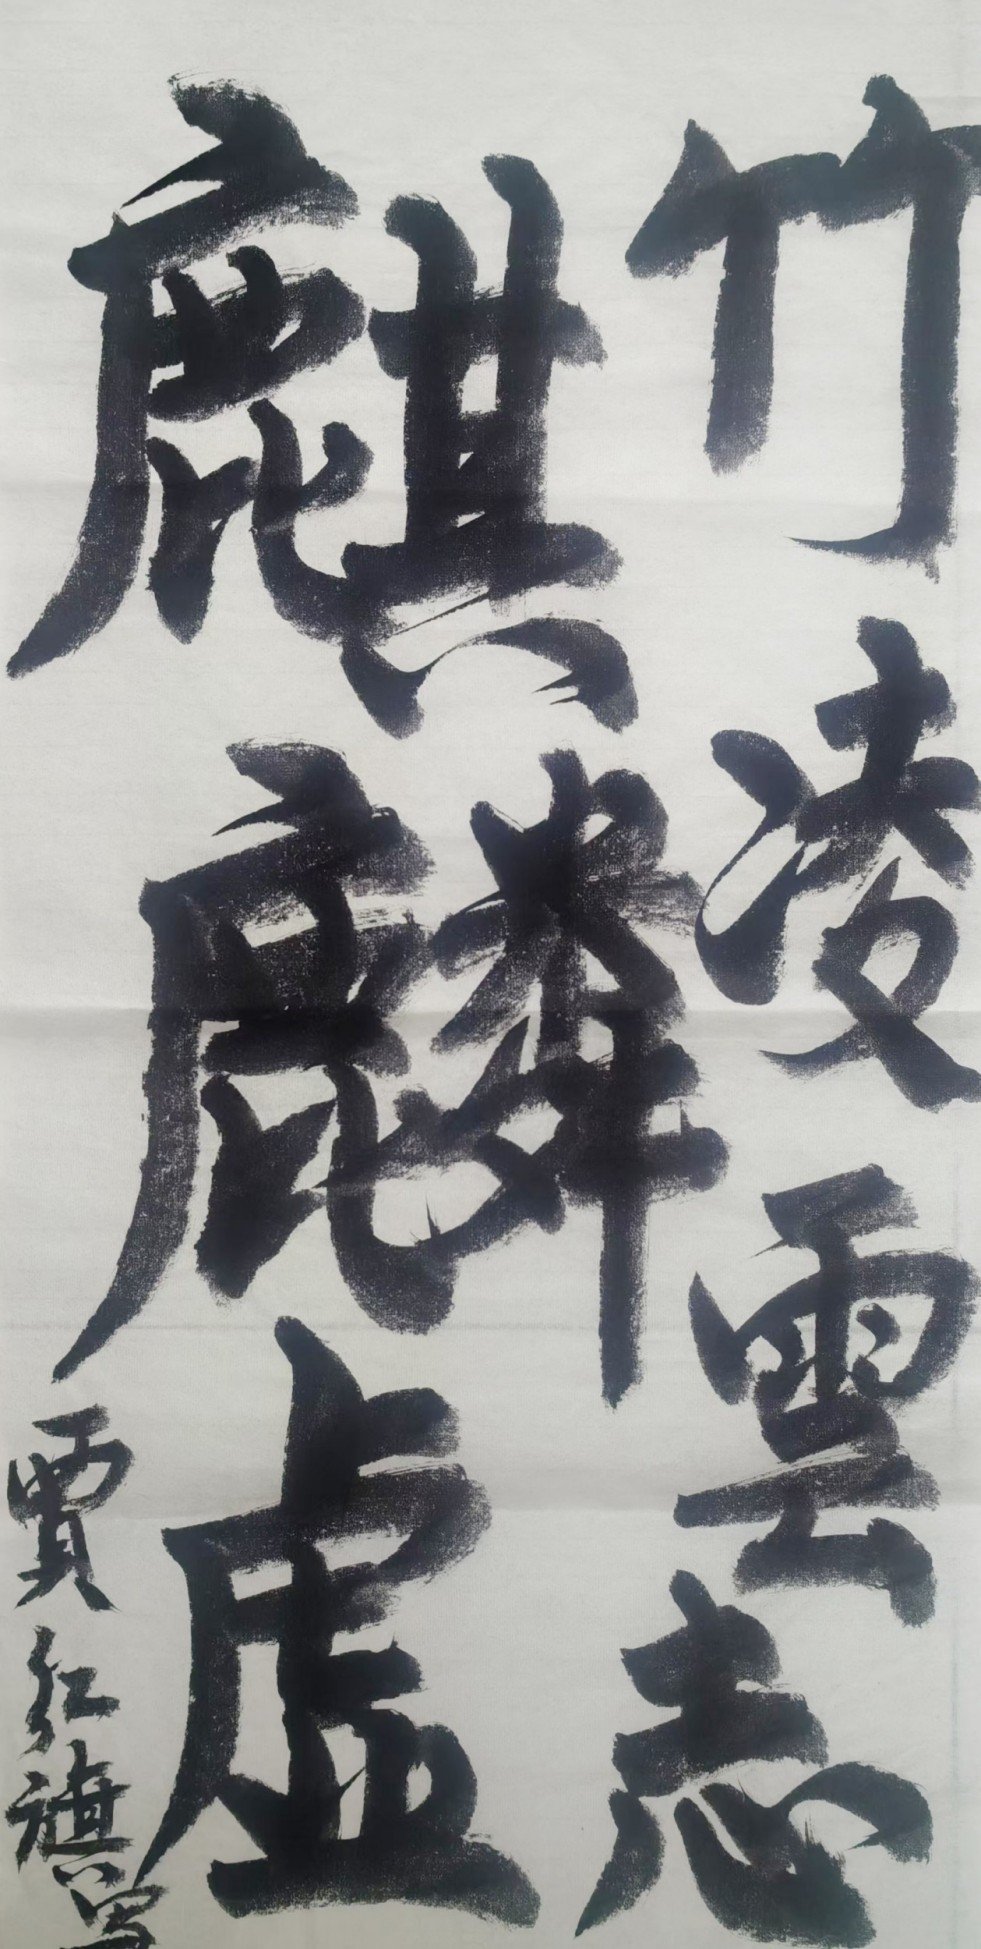 竹凌雲志
麒麟虛
賈红旗写